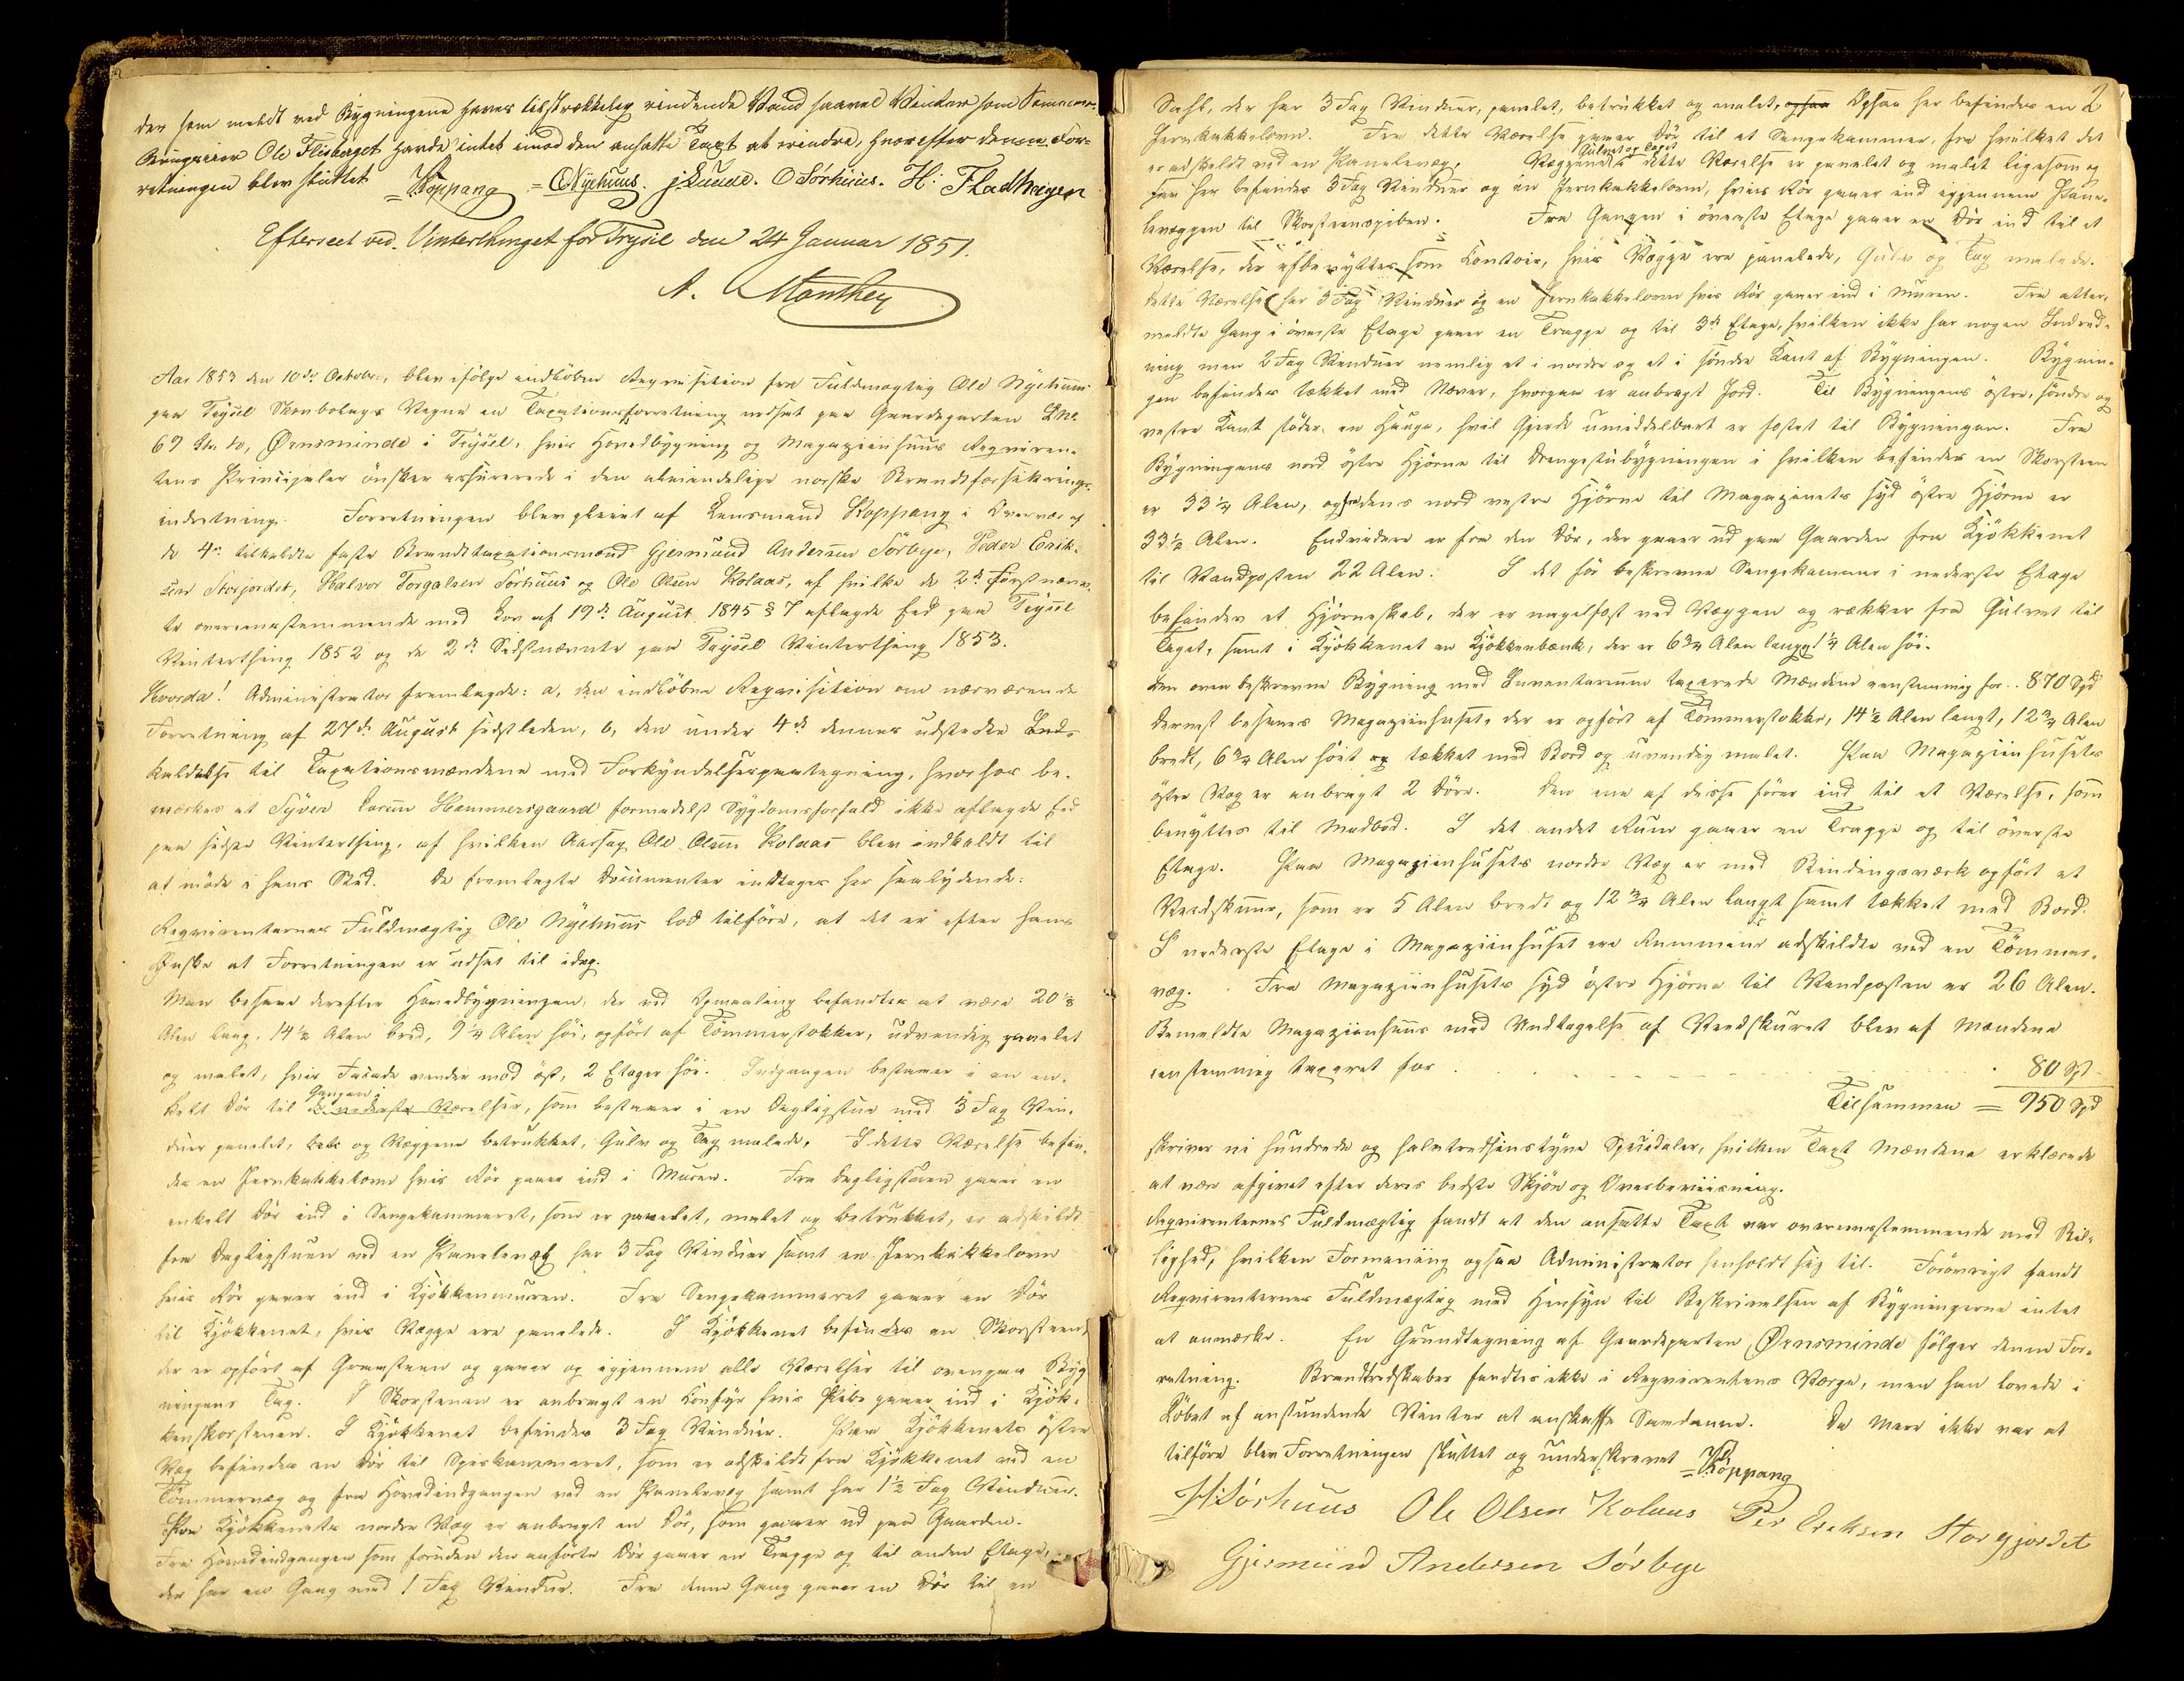 der som meldt ved Bygningene haves tilstrækkelig rindende Vand saavel Vinter som Sommer.
Brugeier Ole Flisberget havde intet imod den ansatte Taxt at erindre, hvorefter denne For-
retningen blev sluttet Koppang = ONyehuus. jLunde. OSørhuus. H: Fladhagen
Efterseet ved Vinterthinget for Trysil den 24 Januar 1851.
A. Manthey
Aar 1853 den 10de October, blev ifølge indløben Reqvisition fra Fuldmægtig Ole Nyehuus
paa Trysil Skovbolags Vegne en Taxationsforretning afholdt paa Gaardeparten LNr.
67 Ørnsminde i Trysil, hvis Hovedbygning og Magaziinhuus Reqviren-
tens Principaler ønsker assurerede i den almindelige norske Brandforsikrings-
indretning. Forretningen blev pleiet af Lensmand Koppang i Overvær af
de 4re tilkaldte faste Brandtaxationsmænd Gjermund Andersen Sørbye, Peder Erik-
sen Storjordet, Halvor Torgalsen Sørhuus og Ole Olsen Kolaas, af hvilke de 2de Førstnævn-
te overeensstemmende med Lov af 19de August 1845 § 7 aflagde Eed paa Trysil
Vinterthing 1852 og de 2de Sidstnævnte paa Trysil Vinterthing 1853.
Hvorda! Administrator fremlagde: a, den indløbne Reqvisition om nærværende
Forretning af 27de August sidstleden, b, den under 4de dennes udstedte Ind-
kaldelse til Taxationsmændene med Forkyndelsespaategning, hvorhos be-
mærkes at Syver Larsen Hammersgaard formedelst Sygdomsforfald ikke aflagde Eed
paa sidste Vinterthing, af hvilken Aarsag Ole Olsen Kolaas blev indkaldt til
at møde i hans Sted. De fremlagte Documenter indtages her saalydende:
Reqvirenternes Fuldmægtig Ole Nyehuus lod tilføre, at det er efter hans
Ønske at Forretningen er udsat til idag.
Man besaae derefter Hovedbygningen, der ved Opmaaling befandtes at være 20 1/8
Alen lang, 14 1/2 Alen bred, 9 1/4 Alen høi, opført af Tømmerstokker, udvendig panelet
og malet, hvis Facade vender mod øst, 2 Etager høi. Indgangen bestaaer i en en-
kelt Dør til Gangen i de nederste Værelser, som bestaaer i en Dagligstue med 3 Fag Vin-
duer panelet, og Væggene betrukket, Gulv og Tag malede. I dette Værelse befin-
des en Jernkakkelovn hvis Rør gaaer ind i Muren. Fra Dagligstuen gaaer en
enkelt Dør ind i Sengekammeret, som er panelet, malet og betrukket, er adskildt
fra Dagligstuen ved en Panelvæg har 3 Fag Vinduer samt en Jernkakkelovn
hvis Rør gaaer ind i Kjøkkenmuren. Fra Sengekammeret gaaer en Dør
til Kjøkkenet, hvis Vægge ere panelede. I Kjøkkenet befindes en Skorsteen,
der er opført af Graasteen og gaaer op igjennem alle Værelser til ovenpaa Byg-
ningens Tag. I Skorstenen er anbragt en Komfyr hvis Pibe gaaer ind i Kjøk-
kenskorstenen. I Kjøkkenet befindes 3 Fag Vinduer. Paa Kjøkkenets østre
Væg befindes en Dør til Spiskammeret, som er adskildt fra Kjøkkenet ved en
Tømmervæg og fra Hovedindgangen ved en Panelvæg samt har 1 1/2 Fag Vinduer.
Paa Kjøkkenets nordre Væg er anbragt en Dør, som gaaer ud paa Gaarden.
Fra Hovedindgangen som foruden den anførte Dør gaaer en Trappe op til anden Etage,
der har en Gang med 1 Fag Vindue. Fra denne Gang gaaer en Dør til en
2
Sahl, der har 3 Fag Vinduer, panelet, betrukket og malet, ogsaa Ogsaa her befindes en
Jernkakkelovn. Fra dette Værelse gaaer Dør til et Sengekammer, fra hvilket det
er adskildt ved en Panelvæg. Væggene Gulvet og Taget i dette Værelse er panelet og malet ligesom og-
saa her befindes 3 Fag Vinduer og en Jernkakkelovn, hvis Rør gaaer ind igjennem Pane-
lvæggen til Skorsteenspiben. Fra Gangen i øverste Etage gaaer en Dør ind til et
Værelse, der afbenyttes som Contoir, hvis Vægge ere panelede, Gulv og Tag malede.
Dette Værelse har 3 Fag Vinduer og en Jernkakkelovn hvis Rør gaaer ind i Muren. Fra atter-
meldte Gang i øverste Etage gaaer en Trappe op til 3die Etage, hvilken ikke har nogen Indred-
ning men 2 Fag Vinduer nemlig et i nordre og et i søndre Kant af Bygningen. Bygnin-
gen befindes tækket med Næver, hvorpaa er anbragt Jord. Til Bygningens østre, søndre og
vestre Kant støder en Hauge, hvis Gjerde umiddelbart er fæstet til Bygningen. Fra
Bygningens nord østre Hjørne til Drengestubygningen i hvilken befindes en Skorsteen
er 33 1/4 Alen, og fra dens nord vestre Hjørne til Magazinets syd østre Hjørne er
33 1/2 Alen. Endvidere er fra den Dør, der gaaer ud paa Gaarden fra Kjøkkenet
til Vandposten 22 Alen. I det før beskrevne Sengekammer i nederste Etage
befindes et Hjørneskab, der er nagelfast ved Væggen og rækker fra Gulvet til
Taget, samt i Kjøkkenet en Kjøkkenbænk, der er 6 3/4 Alen lang og 1 1/4 Alen høi.
Den oven beskrevne Bygning med Inventarium taxerede Mændene eenstemmig for .. 870 Spd
Dernæst besaaes Magaziinhuset, der er opført af Tømmerstokke, 14 1/2 Alen langt, 12 3/4 Alen
bredt, 6 3/4 Alen høit og tækket med Bord og udvendig malet. Paa Magaziinhusets
østre Væg er anbragt 2 Døre. Den ene af disse fører ind til et Værelse, som
benyttes til Madbod. I det andet Rum gaaer en Trappe op til øverste
Etage. Paa Magaziinhusets nordre Væg er med Bindingsværk opført et
Vedskuur, som er 5 Alen bredt og 12 3/4 Alen langt samt tækket med Bord.
I nederste Etage i Magaziinhuset ere Rummene adskildte ved en Tømmer-
væg. Fra Magaziinhusets syd østre Hjørne til Vandposten er 26 Alen.
Bemeldte Magaziinhuus med Undtagelse af Vedskuret blev af Mændene
eenstemmig taxeret for . . . . 80 Spd
Tilsammen = 950 Spd
skriver ni hundrede og halvtredsindstyve Speciedaler, hvilken Taxt Mændene erklærede
at være afgivet efter deres bedste Skjøn og Overbeviisning.
Reqvirenternes Fuldmægtig fandt at den ansatte Taxt var overeensstemmende med Bil-
lighed, hvilken Formening ogsaa Administrator henholdt sig til. Forøvrigt fandt
Reqvirenternes Fuldmægtig med Hensyn til Beskrivelsen af Bygningerne intet
at anmærke. En Grundtegning af Gaardeparten Ørnsminde følger denne For-
retning. Brandredskaber fandtes ikke i Reqvirentens Værge, men han lovede i
Løbet af anstundende Vinter at anskaffe Saadanne. Da Mere ikke var at
tilføre blev Forretningen sluttet og underskrevet Koppang
HSørhuus Ole Olsen Kolaas Per Ereksen Storgjordet
Gjermund Andersen Sørbye